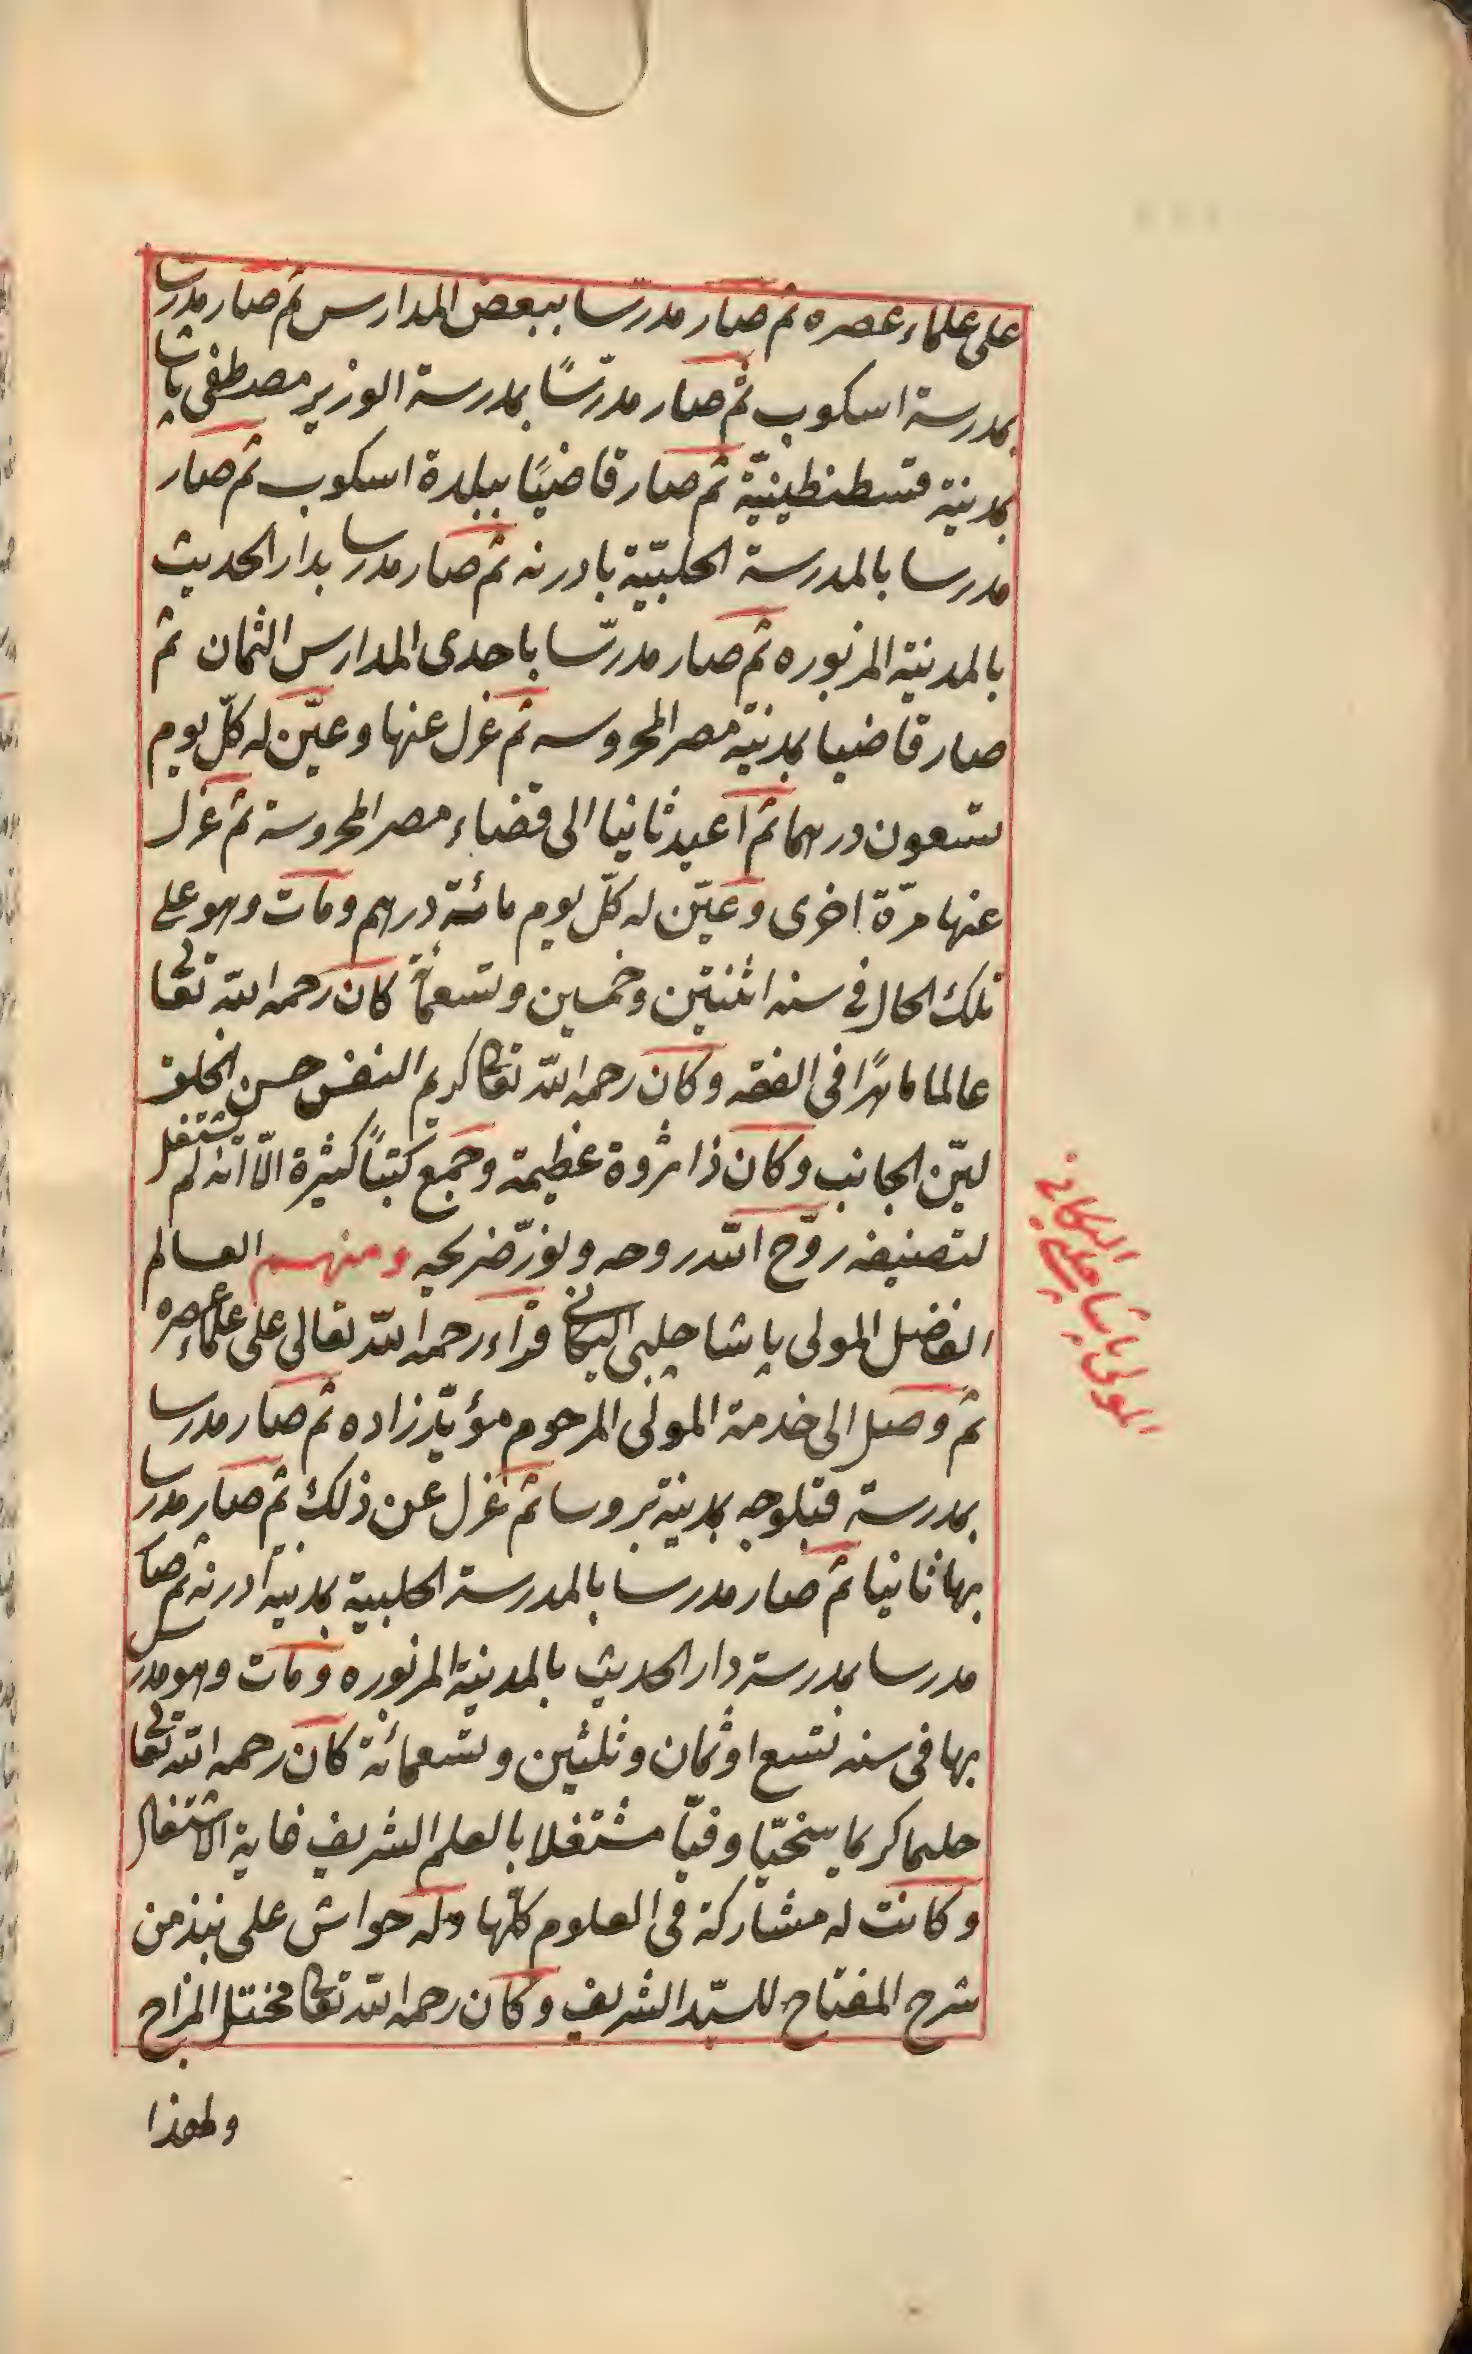 على علماء عصره ثم صار مدرسا ببعض المدارس ثم صار مدرسا
بمدرسة اسكوب ثم صار مدرّسًا بمدرسة الوزير مصطفى پاشا
بمدينة قسطنطينيّة ثم صار قاضيًا ببلدة اسكوب ثم صار
مدرسا بالمدرسة الحلبيّة بادرنه ثم صار مدرسا بدار الحديث
بالمدينة المزبوره ثم صار مدرّسا باحدى المدارس الثمان ثم
صار قاضيا بمدينة مصر المحروسه ثم عزل عنها وعيّن له كلّ يوم
تسعون درهما ثم اعيد ثانيا الى قضاء مصر المحروسة ثم عزل
عنها مرّة اخرى وعيّن له كلّ يوم مائة درهم ومات وهو على
تلك الحال فى سنه اثنتين وخمسين وتسعمائة كان رحمه الله تعالى
عالما ماهرًا فى الفقه وكان رحمه الله تعالى كريم النفس حسن الخلق
ليّن الجانب وكان ذا ثروة عظيمة وجمع كتبًا كثيرة الّا انّه لم يشتغل
لتصنيفه روّح الله روحه ونوّر ضريحه ومنهم العالم
الفاضل المولى پاشا چلبى اليكانى قراء رحمه الله تعالى على علماء عصره
ثم وصل الى خدمة المولى المرحوم مؤيّد زاده ثم صار مدرسا
بمدرسة قبلوجه بمدينة بروسا ثم عزل عن ذلك ثم صار مدرسا
بها ثانيا ثم صار مدرسا بالمدرسة الحلبية بمدينة ادرنه ثم صار
مدرسا بمدرسة دار الحديث بالمدينة المزبوره ومات وهو مدرس
بها فى سنه تسع او ثمان وثلثين وتسعمائة كان رحمه الله تعالى
حليما كريما سخيّا وفيّا مشتغلا بالعلم الشريف غاية الاشتغال
وكانت له مشاركة فى العلوم كلّها وله حواش على نبذ من
شرح المفتاح للسيّد الشريف وكان رحمه الله تعالى مختل المزاج
ولهذا
المولى پاشا چلبى
اليكانى